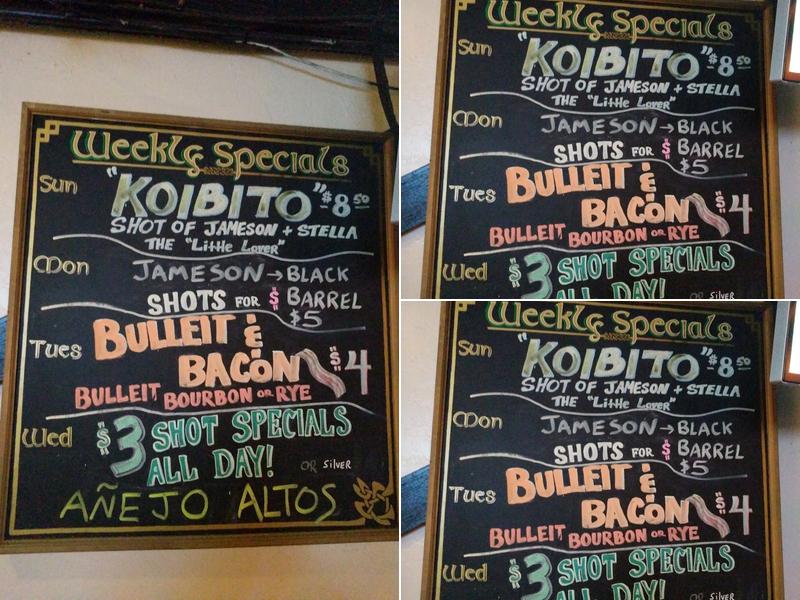 Weekly Specials
Sun "KOIBITO" $8.50
SHOT OF JAMESON + STELLA
THE "Little Lover"
Mon JAMESON → BLACK
SHOTS FOR $ BARREL
$5
Tues BULLEIT &
BACON $4
BULLEIT BOURBON OR RYE
Wed $3 SHOT SPECIALS
ALL DAY! OR SILVER
AÑEJO ALTOS
Weekly Specials
Sun "KOIBITO" $8.50
SHOT OF JAMESON + STELLA
THE "Little Lover"
Mon JAMESON → BLACK
SHOTS FOR $ BARREL
$5
Tues BULLEIT &
BACON $4
BULLEIT BOURBON OR RYE
Wed $3 SHOT SPECIALS
ALL DAY! OR SILVER
Weekly Specials
Sun "KOIBITO" $8.50
SHOT OF JAMESON + STELLA
THE "Little Lover"
Mon JAMESON → BLACK
SHOTS FOR $ BARREL
$5
Tues BULLEIT &
BACON $4
BULLEIT BOURBON OR RYE
Wed $3 SHOT SPECIALS
ALL DAY! OR SILVER